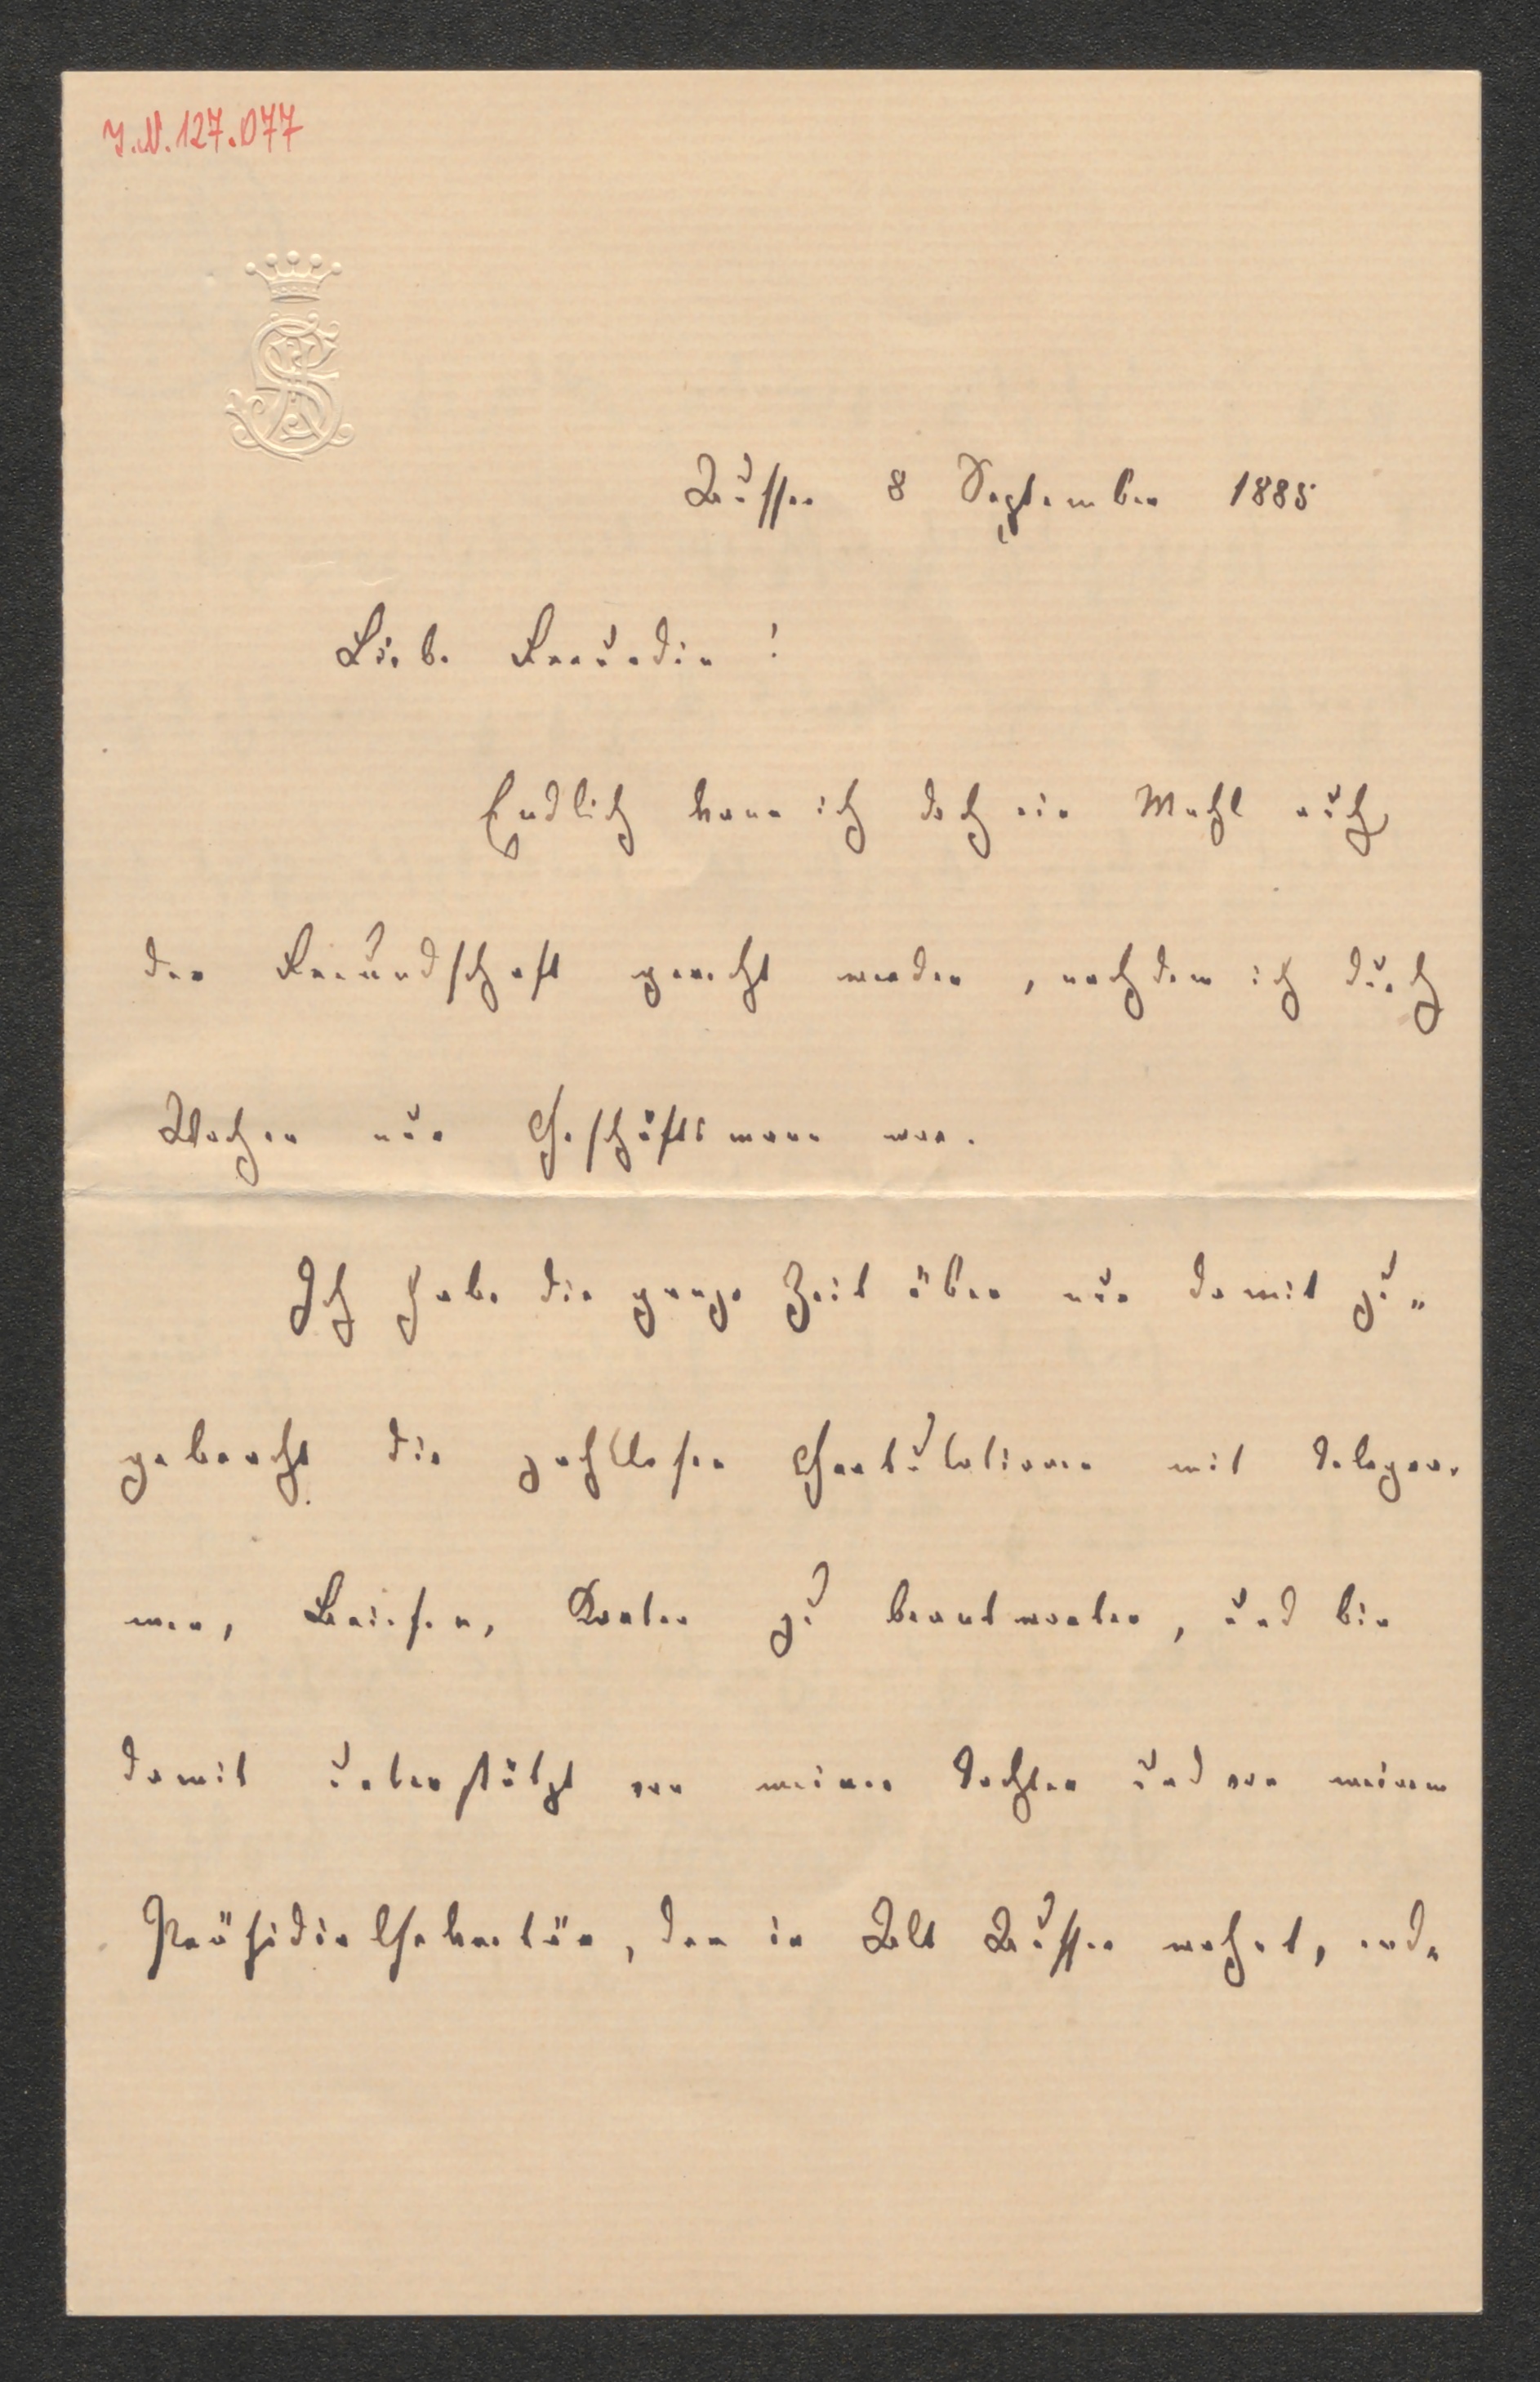 J.N. 127.077
Aussee 8 September 1885
Liebe Freundin!
Endlich kann ich doch ein Mahl auch
der Freundschaft gerecht werden, nachdem ich durch
Wochen nur Geschäftsmann war.
Ich habe die ganze Zeit über nur damit zu„
gebracht die zahllosen Gratulationen mit Telegra„
men, Briefen, Karten zu beantworten, und bin
damit unterstützt von meiner Tochter und von meinem
Präsidialsekretär, der in Alt Aussee wohnt,